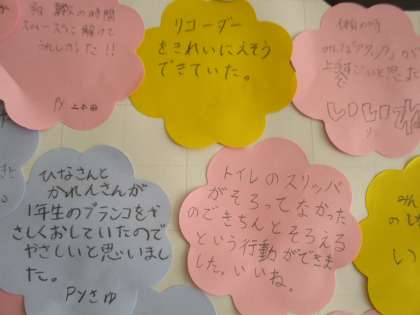 の時間
解けて
うれしかった!!
リコーダー
をきれいにえそう
できていた。
の時
が
いいね
ひなさんと
かれんさんが
1年生のブランコをや
さしくおしていたので
やさしいと思いまし
た。
Pyさゆ
トイレのスリッパ
がそろってなかった
のごきちんとそろえる
という行動ができま
した。いいね。
み
の
い